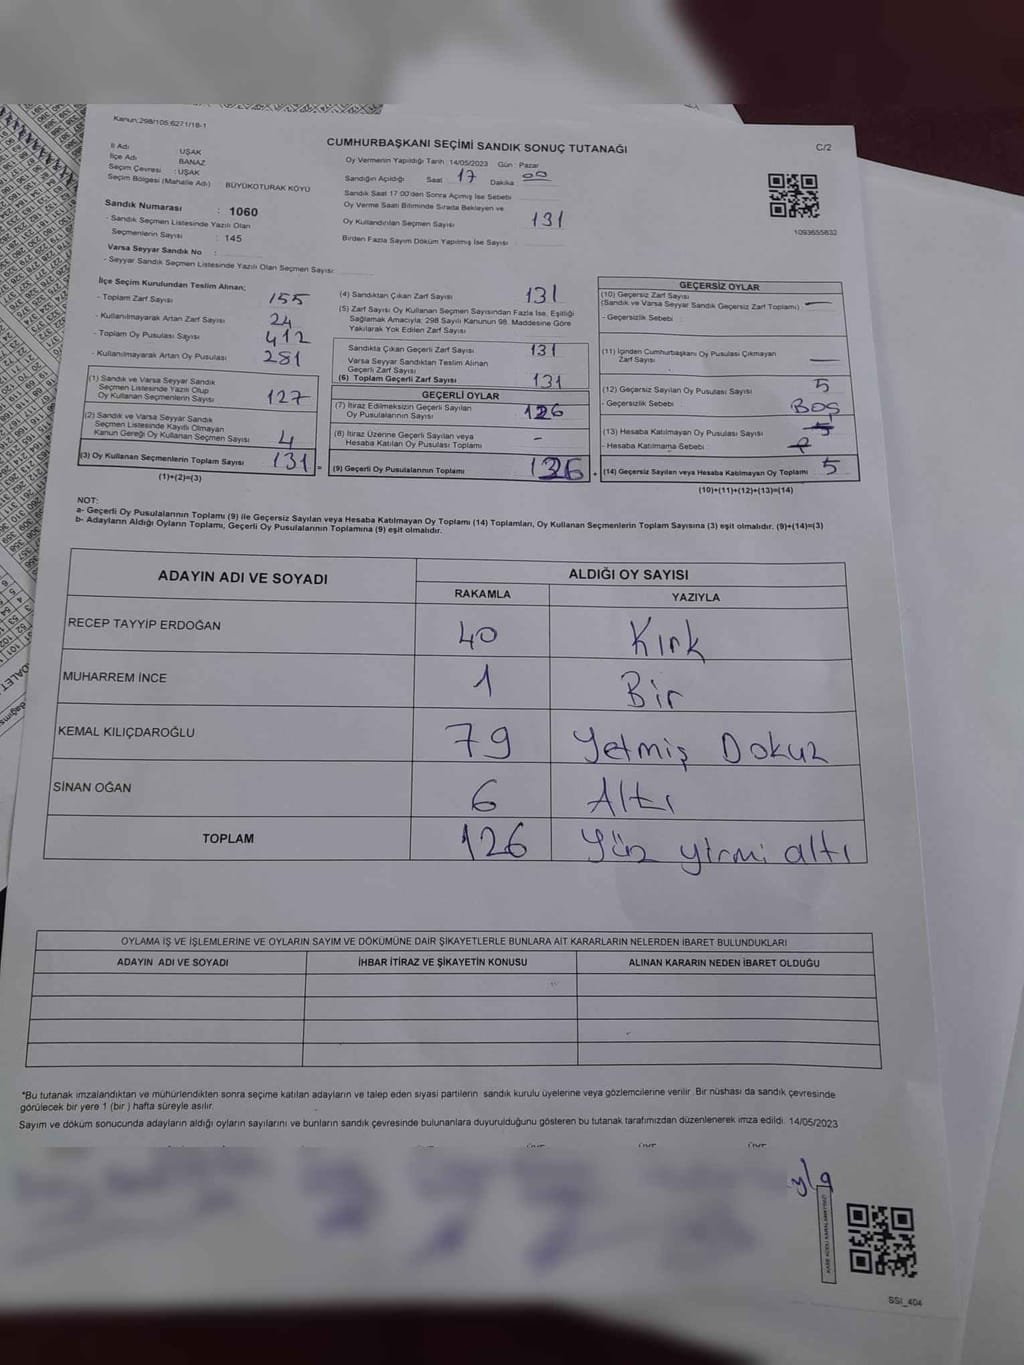 Kanun:298/105;6271/18-1
CUMHURBAŞKANI SEÇİMİ SANDIK SONUÇ TUTANAĞI
C/2
İl Adı : UŞAK
İlçe Adı : BANAZ
Seçim Çevresi : UŞAK
Seçim Bölgesi (Mahalle Adı) : BÜYÜKOTURAK KÖYÜ
Sandık Numarası : 1060
- Sandık Seçmen Listesinde Yazılı Olan
Seçmenlerin Sayısı : 145
Varsa Seyyar Sandık No :
- Seyyar Sandık Seçmen Listesinde Yazılı Olan Seçmen Sayısı:
Oy Vermenin Yapıldığı Tarih :14/05/2023 Gün : Pazar
Sandığın Açıldığı Saat : 17 Dakika 00
Sandık Saat 17:00'den Sonra Açımış İse Sebebi
Oy Verme Saati Bitiminde Sırada Bekleyen ve
Oy Kullandırılan Seçmen Sayısı 131
Birden Fazla Sayım Döküm Yapılmış İse Sayısı :
1093655832
İlçe Seçim Kurulundan Teslim Alınan;
- Toplam Zarf Sayısı 155
- Kullanılmayarak Artan Zarf Sayısı 24
- Toplam Oy Pusulası Sayısı 412
- Kullanılmayarak Artan Oy Pusulası 281
(1) Sandık ve Varsa Seyyar Sandık
Seçmen Listesinde Yazılı Olup
Oy Kullanan Seçmenlerin Sayısı 127
(2) Sandık ve Varsa Seyyar Sandık
Seçmen Listesinde Kayıtlı Olmayan
Kanun Gereği Oy Kullanan Seçmen Sayısı 4
(3) Oy Kullanan Seçmenlerin Toplam Sayısı 131 =
(1)+(2)=(3)
(4) Sandıktan Çıkan Zarf Sayısı 131
(5) Zarf Sayısı Oy Kullanan Seçmen Sayısından Fazla İse, Eşitliği
Sağlamak Amacıyla; 298 Sayılı Kanunun 98. Maddesine Göre
Yakılarak Yok Edilen Zarf Sayısı
Sandıkta Çıkan Geçerli Zarf Sayısı 131
Varsa Seyyar Sandıktan Teslim Alınan
Geçerli Zarf Sayısı
(6) Toplam Geçerli Zarf Sayısı 131
GEÇERLİ OYLAR
(7) İtiraz Edilmeksizin Geçerli Sayılan
Oy Pusulalarının Sayısı 126
(8) İtiraz Üzerine Geçerli Sayılan veya
Hesaba Katılan Oy Pusulası Toplamı -
(9) Geçerli Oy Pusulalarının Toplamı 126 +
GEÇERSİZ OYLAR
(10) Geçersiz Zarf Sayısı
(Sandık ve Varsa Seyyar Sandık Geçersiz Zarf Toplamı) —
- Geçersizlik Sebebi
(11) İçinden Cumhurbaşkanı Oy Pusulası Çıkmayan
Zarf Sayısı —
(12) Geçersiz Sayılan Oy Pusulası Sayısı 5
- Geçersizlik Sebebi BOŞ
(13) Hesaba Katılmayan Oy Pusulası Sayısı
- Hesaba Katılmama Sebebi
(14) Geçersiz Sayılan veya Hesaba Katılmayan Oy Toplamı 5
(10)+(11)+(12)+(13)=(14)
NOT:
a- Geçerli Oy Pusulalarının Toplamı (9) ile Geçersiz Sayılan veya Hesaba Katılmayan Oy Toplamı (14) Toplamları, Oy Kullanan Seçmenlerin Toplam Sayısına (3) eşit olmalıdır. (9)+(14)=(3)
b- Adayların Aldığı Oyların Toplamı, Geçerli Oy Pusulalarının Toplamına (9) eşit olmalıdır.
ADAYIN ADI VE SOYADI
ALDIĞI OY SAYISI
RAKAMLA YAZIYLA
RECEP TAYYİP ERDOĞAN 40 Kırk
MUHARREM İNCE 1 Bir
KEMAL KILIÇDAROĞLU 79 Yetmiş Dokuz
SİNAN OĞAN 6 Altı
TOPLAM 126 Yüz yirmi altı
OYLAMA İŞ VE İŞLEMLERİNE VE OYLARIN SAYIM VE DÖKÜMÜNE DAİR ŞİKAYETLERLE BUNLARA AİT KARARLARIN NELERDEN İBARET BULUNDUKLARI
ADAYIN ADI VE SOYADI İHBAR İTİRAZ VE ŞİKAYETİN KONUSU ALINAN KARARIN NEDEN İBARET OLDUĞU
*Bu tutanak imzalandıktan ve mühürlendikten sonra seçime katılan adayların ve talep eden siyasi partilerin sandık kurulu üyelerine veya gözlemcilerine verilir. Bir nüshası da sandık çevresinde
görülecek bir yere 1 (bir ) hafta süreyle asılır.
Sayım ve döküm sonucunda adayların aldığı oyların sayılarını ve bunların sandık çevresinde bulunanlara duyurulduğunu gösteren bu tutanak tarafımızdan düzenlenerek imza edildi. 14/05/2023
SSI_404